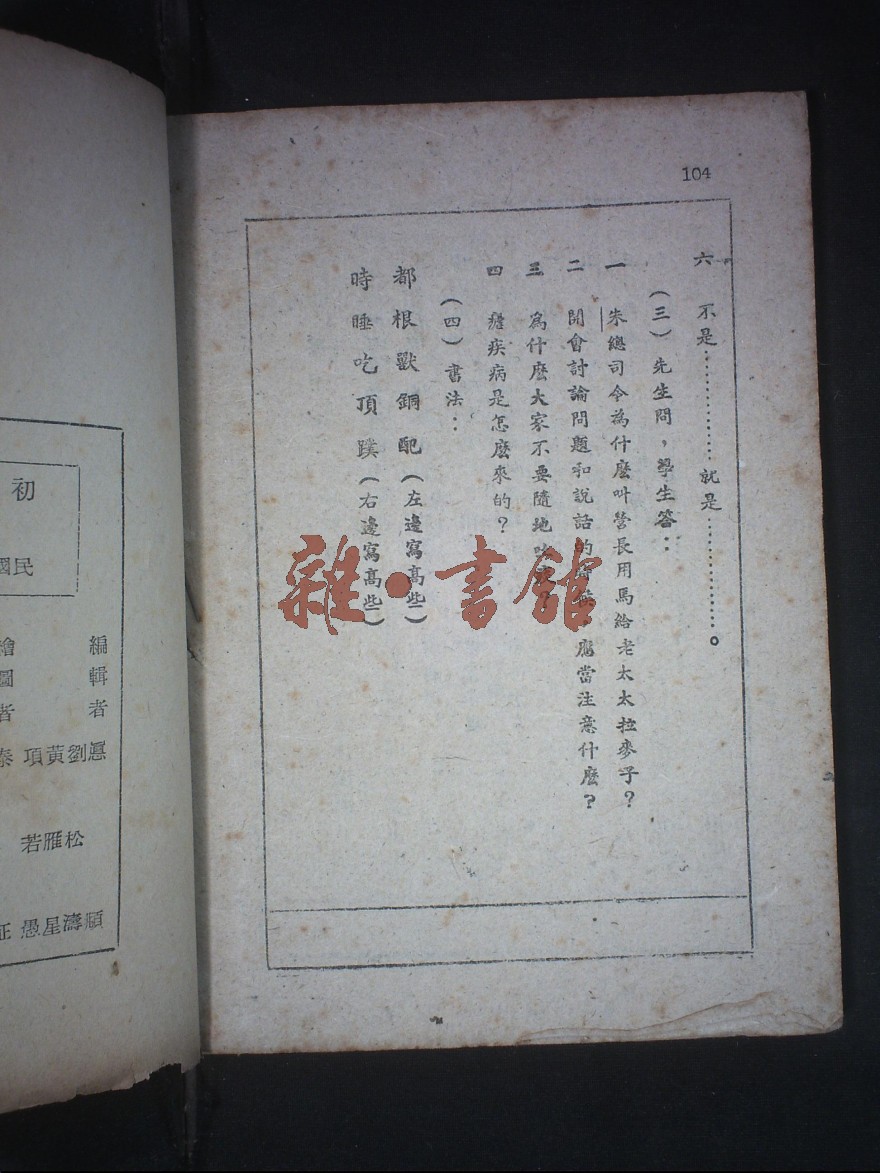 104
六 不是……………就是……………。
（三）先生問，學生答：
一 朱總司令為什麼叫營長用馬給老太太拉麥子？
二 開會討論問題和說話的時候，應當注意什麼？
三 為什麼大家不要隨地吐痰？
四 瘧疾病是怎麼來的？
（四）書法：
都根獸銅配（左邊寫高些）
時睡吃頂蹼（右邊寫高些）
雜·書館
初
國民
編輯者
繪圖者
劉黃項
松雁若
順濤星愚